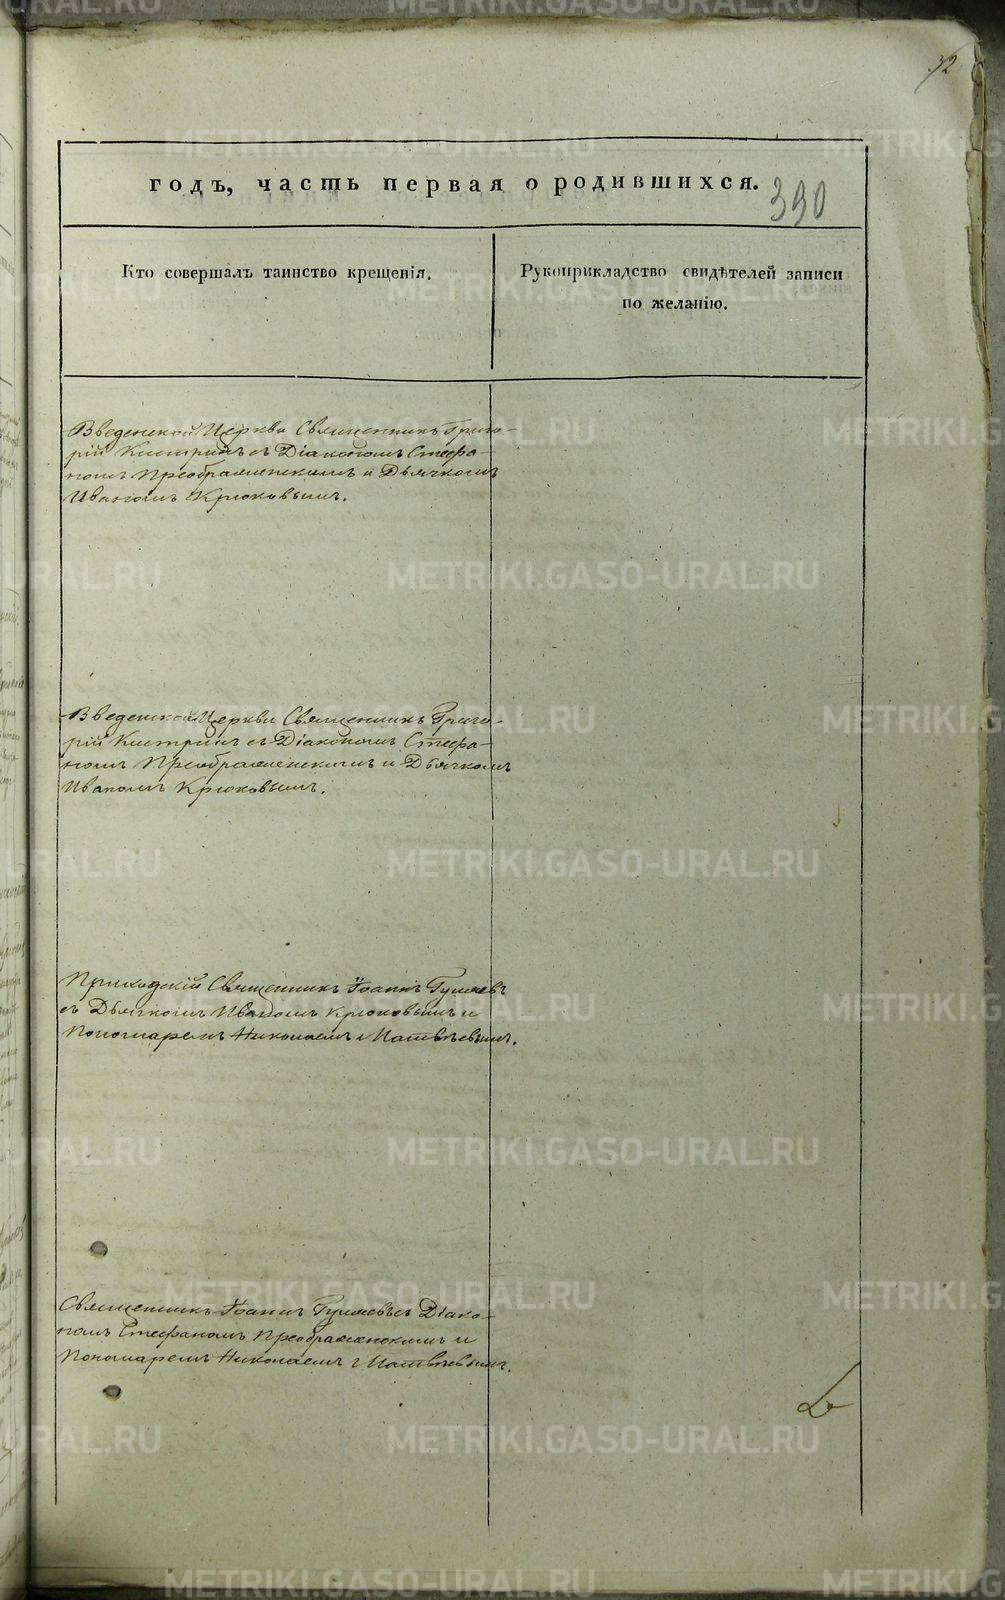 32
годъ, часть первая о родившихся.
390
Кто совершалъ таинство крещенія.
Рукоприкладство свидѣтелей записи
по желанію.
Введенской Церкви Священникъ Григо-
рій Кистринъ съ Діакономъ Стефа-
номъ Преображенскимъ и Дьячкомъ
Иваномъ Крюковымъ.
Введенской Церкви Священникъ Григо-
рій Кистринъ съ Діакономъ Стефа-
номъ Преображенскимъ и Дьячкомъ
Иваномъ Крюковымъ.
Приходскій Священникъ Іоаннъ
съ Дьячкомъ Иваномъ Крюковымъ и
Пономаремъ Николаемъ Матвѣевымъ.
Священникъ Іоаннъ Діако-
номъ Стефаномъ Преображенскимъ и
Пономаремъ Николаемъ Матвѣевымъ.
METRIKI.GASO-URAL.RU